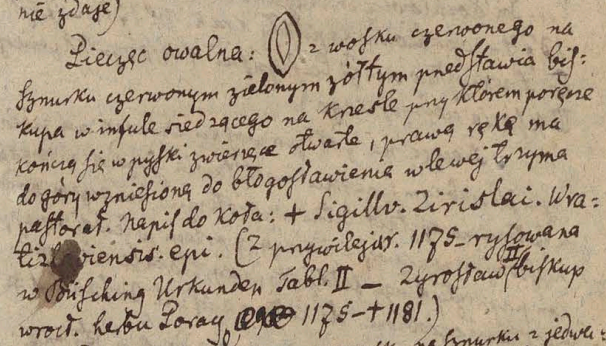 nie zdaje)
Pieczęc owalna: z wosku czerwonego na
sznurku czerwonym zielonym żółtym przedstawia bis-
kupa w infule siedzącego na krześle przy którem poręcze
kończą się w pyski zwierzęce otwarte, prawą rękę ma
do góry wzniesioną do błogosławienia w lewej trzyma
pastorał. Napis do koła: + Sigillv. Zirislai. Wra-
tizlaviensis. epi. (z przywileju r. 1175 – rysowana
w Büsching Urkunden Tabl. II – Zyrosław II biskup
wrocł. herbu Poray 1175 – + 1181.)
sznurku z jedwa-